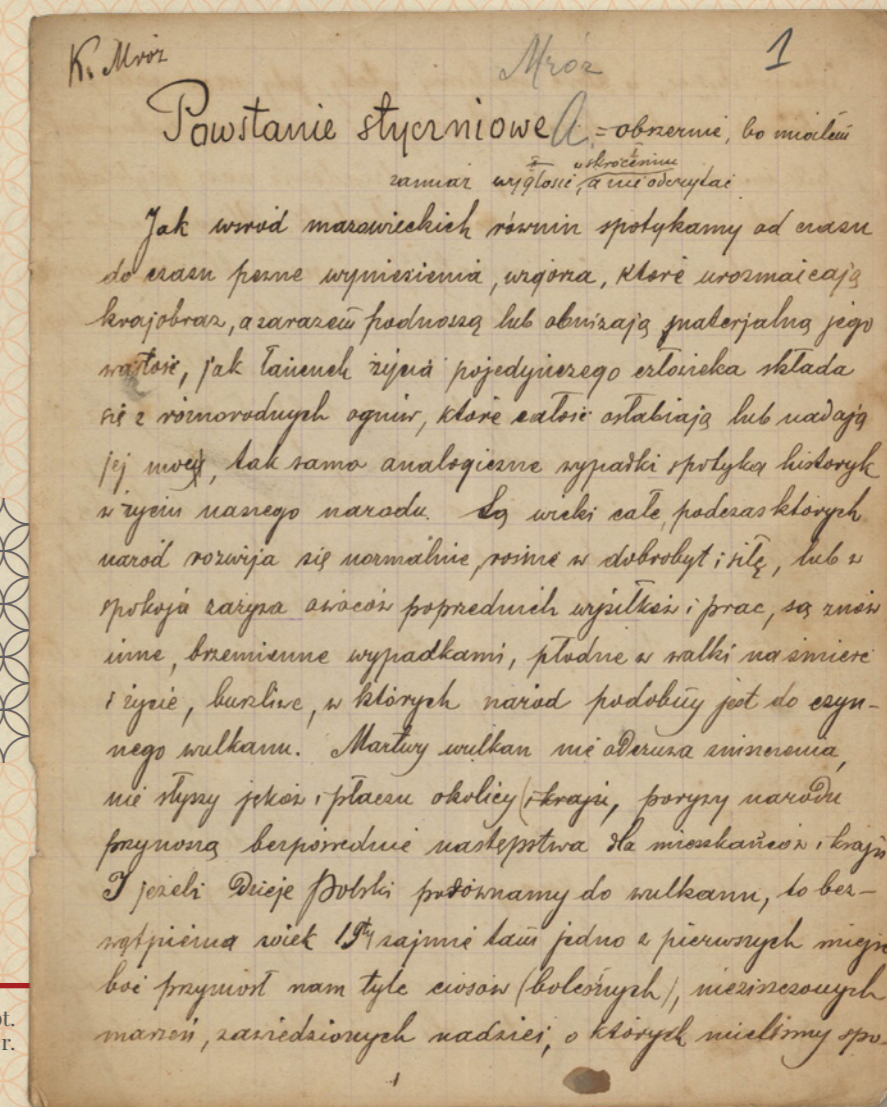 K. Mróz
Mróz
1
Powstanie styczniowe = obszernie, bo miałem
zamiar wygłosić, w skróceniu a nie odczytać
Jak wśród mazowieckich równin spotykamy od czasu
do czasu pewne wyniesienia, wzgórza, które urozmaicają
krajobraz, a zarazem podnoszą lub obniżają materjalną jego
wartość, jak łańcuch życia pojedyńczego człowieka składa
się z różnorodnych ogniw, które całość osłabiają lub nadają
jej mocy, tak samo analogiczne wypadki spotyka historyk
w życiu naszego narodu. Są wieki całe, podczas których
naród rozwija się normalnie, rośnie w dobrobyt i siłę, lub w
spokoju zażywa owoców poprzednich wysiłków i prac, są znów
inne, brzemienne wypadkami, płodne w walki na śmierć
i życie, burzliwe, w których naród podobny jest do czyn-
nego wulkanu. Martwy wulkan nie odczuwa zniszczenia,
nie słyszy jęków i płaczu okolicy (i kraju, porywy narodu
przynoszą bezpośrednie następstwa dla mieszkańców i kraju
I jeżeli Dzieje Polski porównamy do wulkanu, to bez-
wątpienia wiek 19ty zajmie tam jedno z pierwszych miejsc
boć przyniósł nam tyle ciosów (bolesnych), nieziszczonych
marzeń, zawiedzionych nadziei, o których mieliśmy spo-
ot.
r.